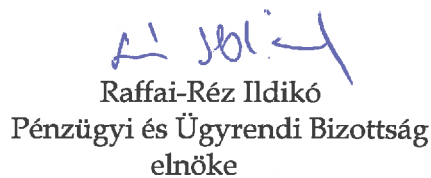 Raffai-Réz Ildikó
Pénzügyi és Ügyrendi Bizottság
elnöke